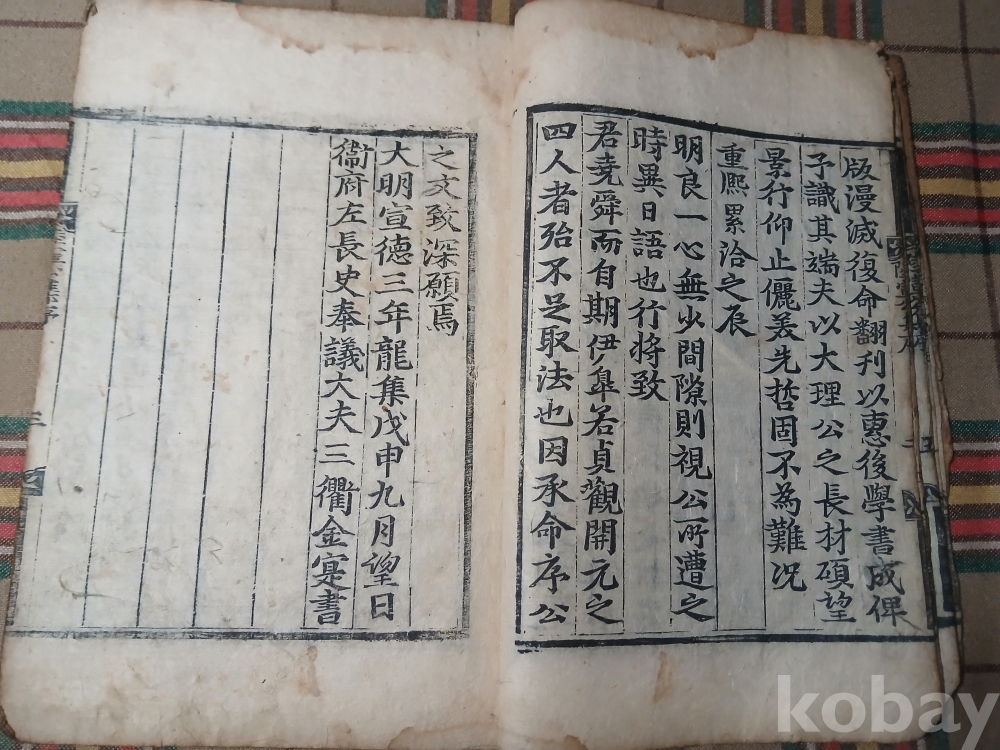 版漫滅復命翻刊以惠後學書成俾
予識其端夫以大理公之長材碩望
景行仰止儷美先哲固不為難况
重熈累洽之辰
明良一心無少間隙則視公所遭之
時異日語也行將致
君堯舜而自期伊臯若貞觀開元之
四人者殆不足取法也因承命序公
之文致深願焉
大明宣德三年龍集戊申九月望日
衞府左長史奉議大夫三衢金寔書
三
kobay